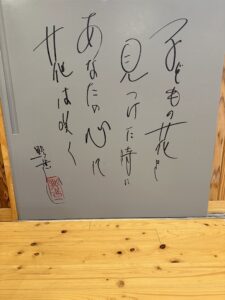 子どもの花を
見つけた時に
あなたの心に
花は咲く